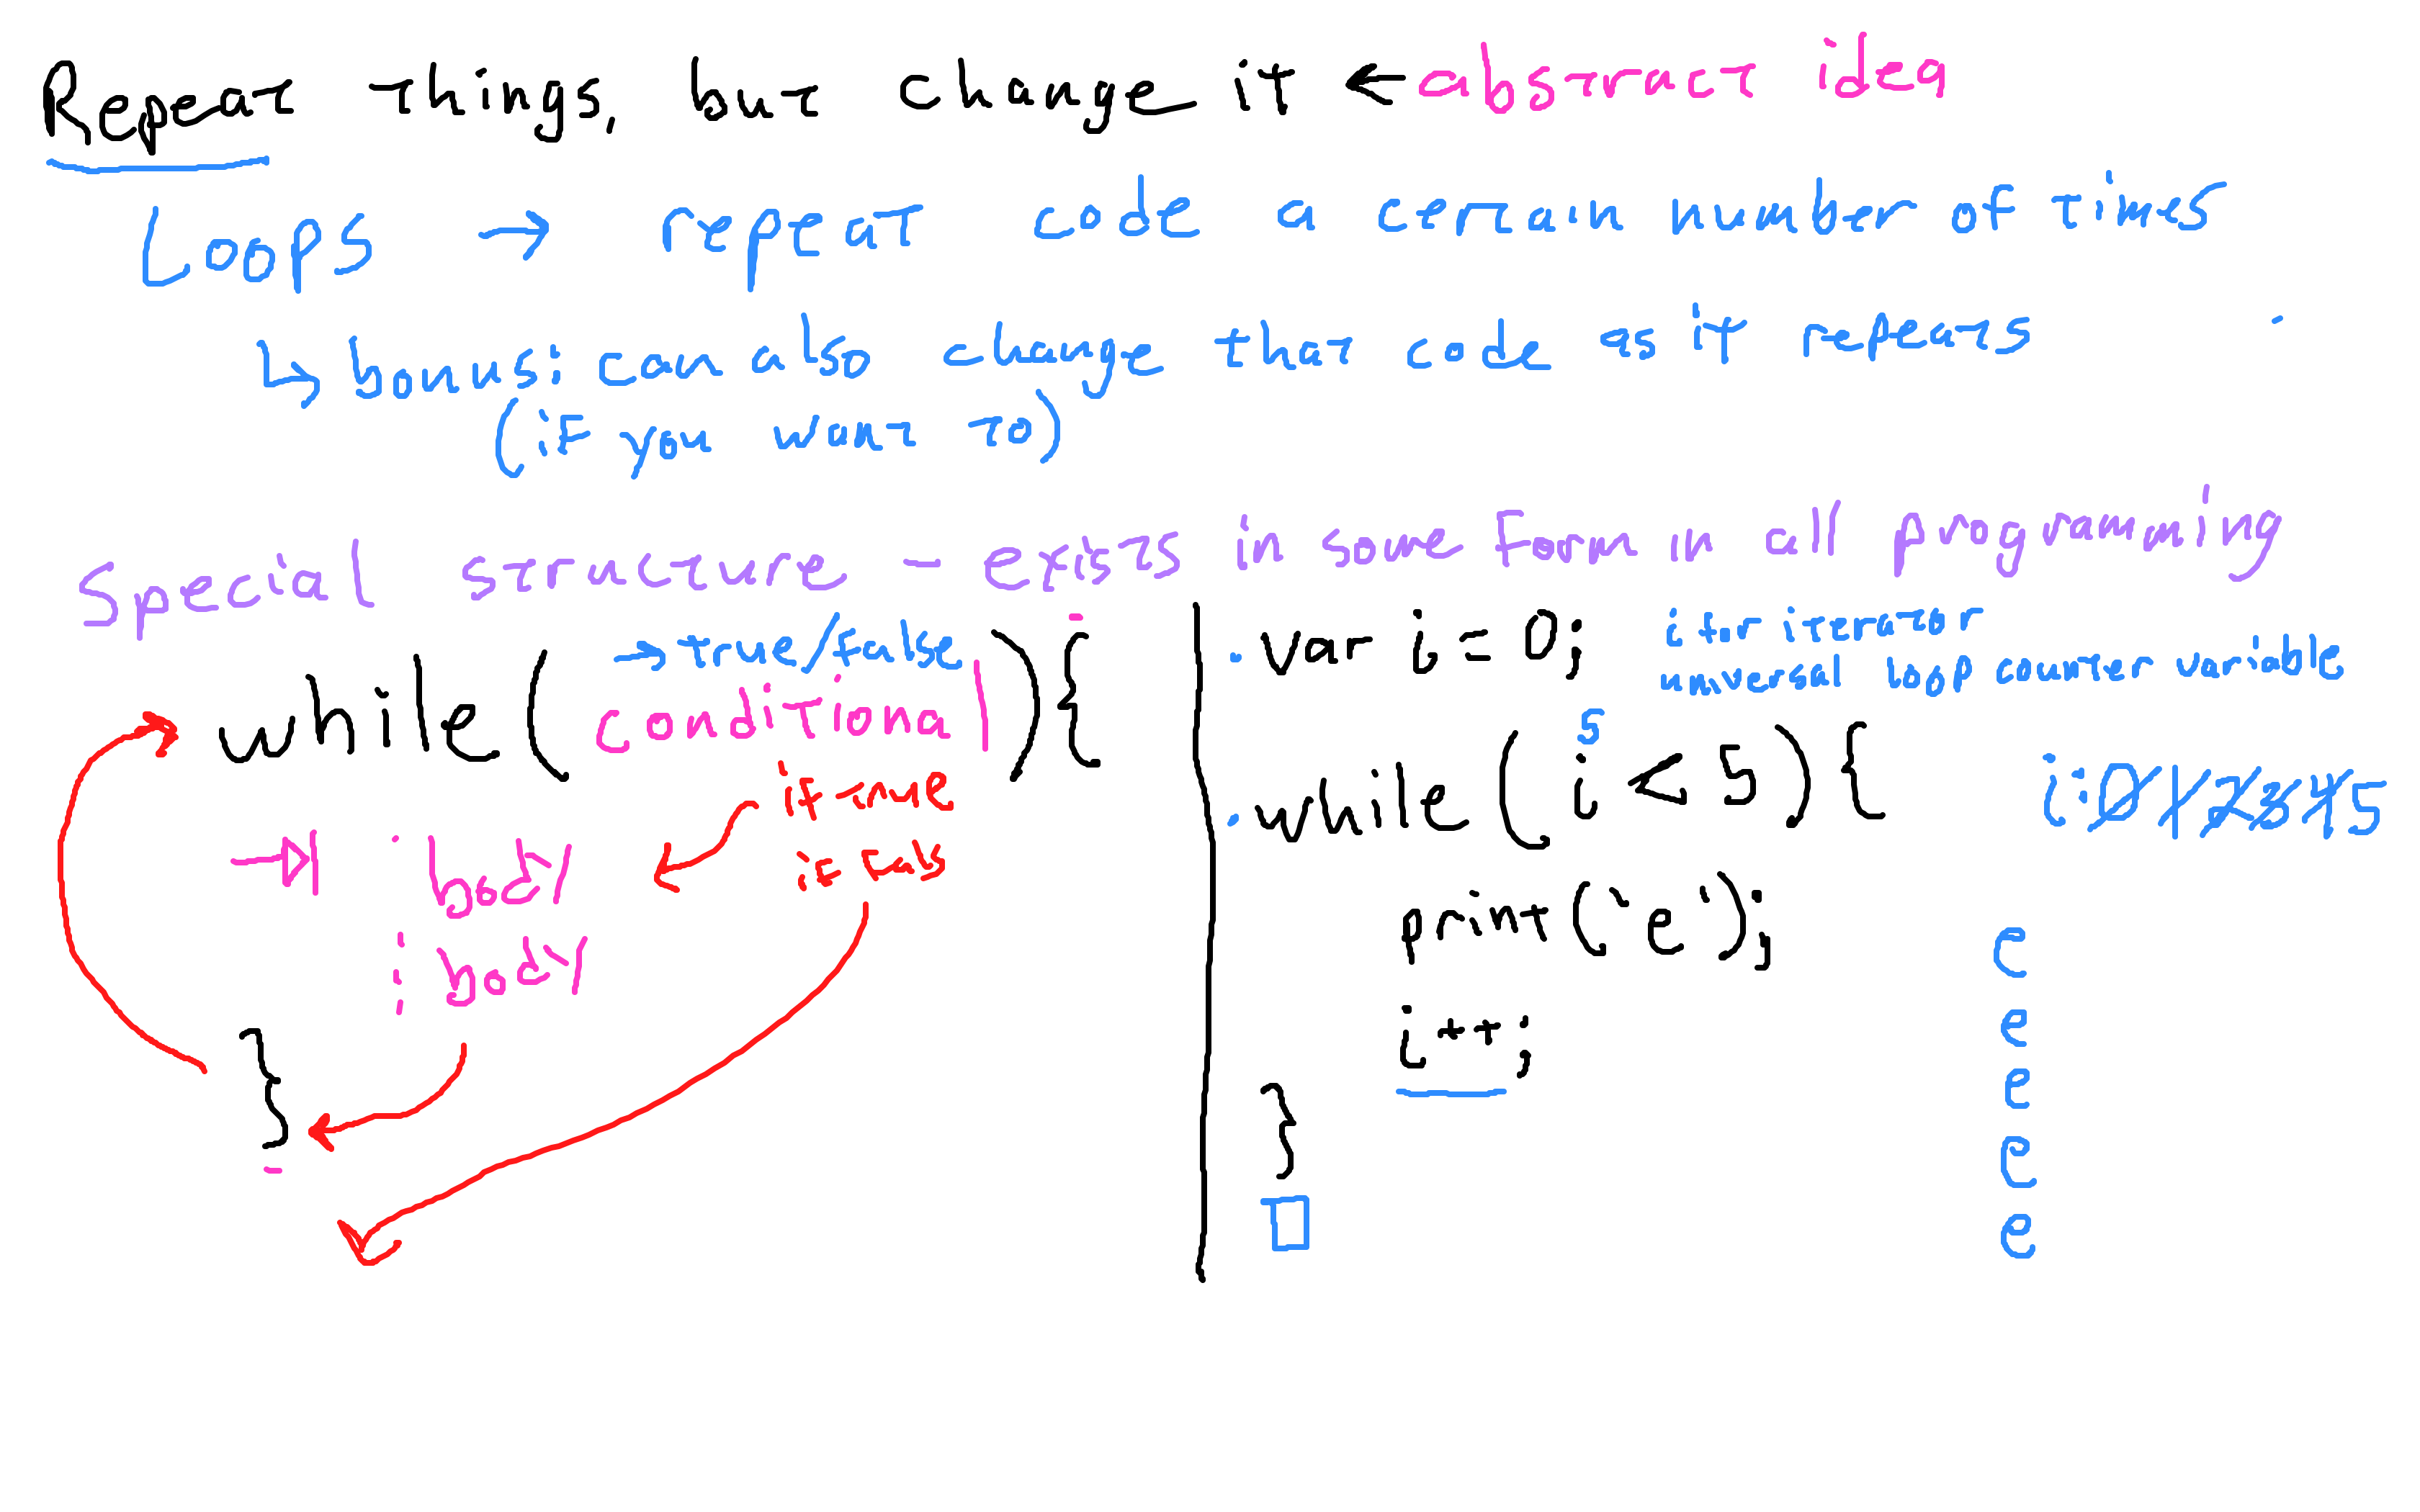 Repeat things, but change it ← abstract idea
Loops → repeat code a certain number of times
↳ bonus: can also change that code as it repeats
(if you want to)
special structure - exists in some form in all programming
→ true/false
while(conditional){
if true
if false
→| body
body
}
var i = 0;
i for iterator
universal loop counter variable
5
while(i < 5){
i: 0 1 2 3 4 5
print('e');
i++;
}
e
e
e
e
e